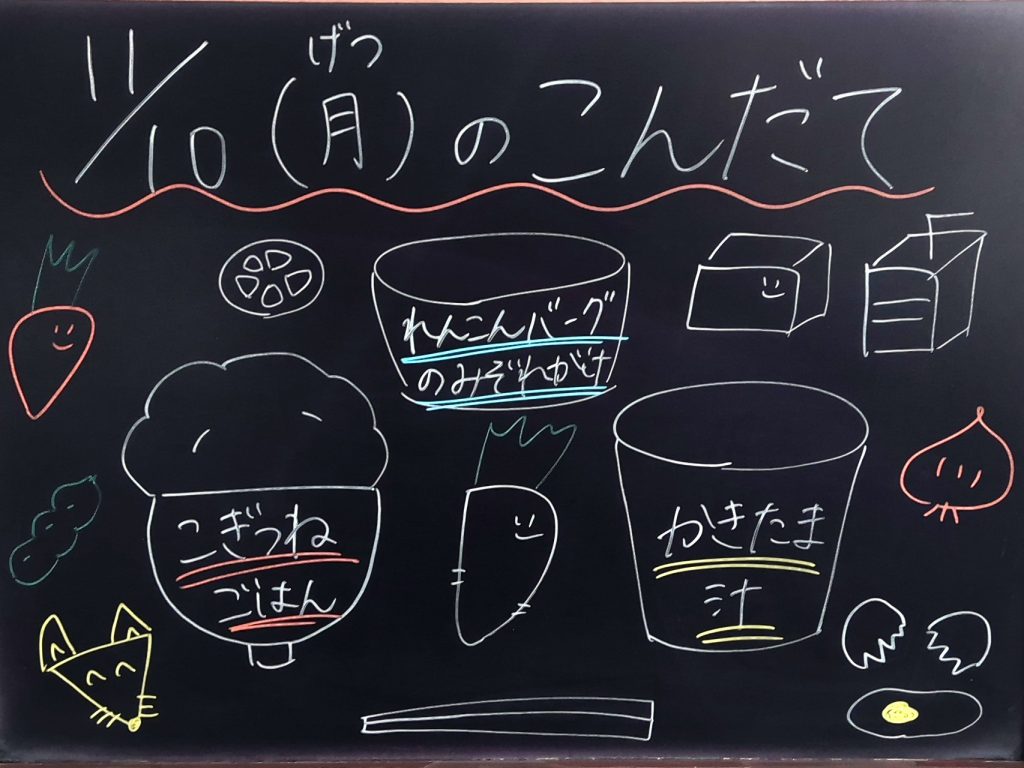 げつ
11/10(月)のこんだて
れんこんバーグ
のみぞれがけ
こぎつね
ごはん
かきたま
汁